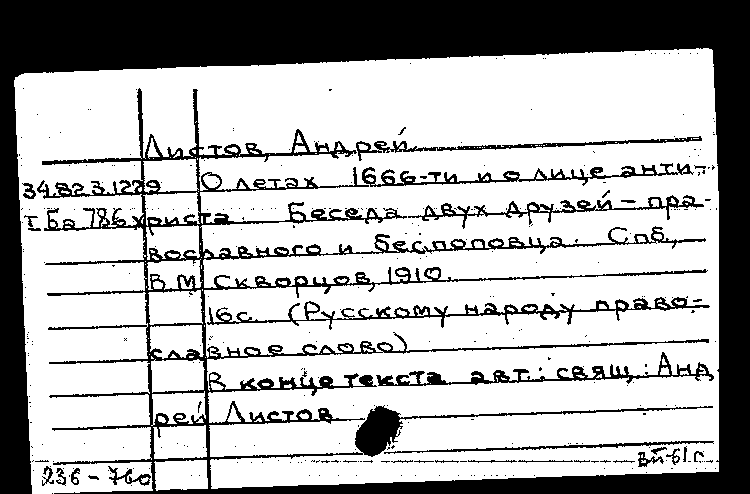 Листов, Андрей
34.82 3.1229 О летах 1666-ти и о лице анти-
I.Ба 786 христа. Беседа двух друзей - пра-
восравного и беспоповца. Спб.,
В М Скворцов, 1910.
16с. (Русскому народу право-
славное слово)
В конце текста авт.: свящ. Анд
рей Листов
236-760 вй-61г